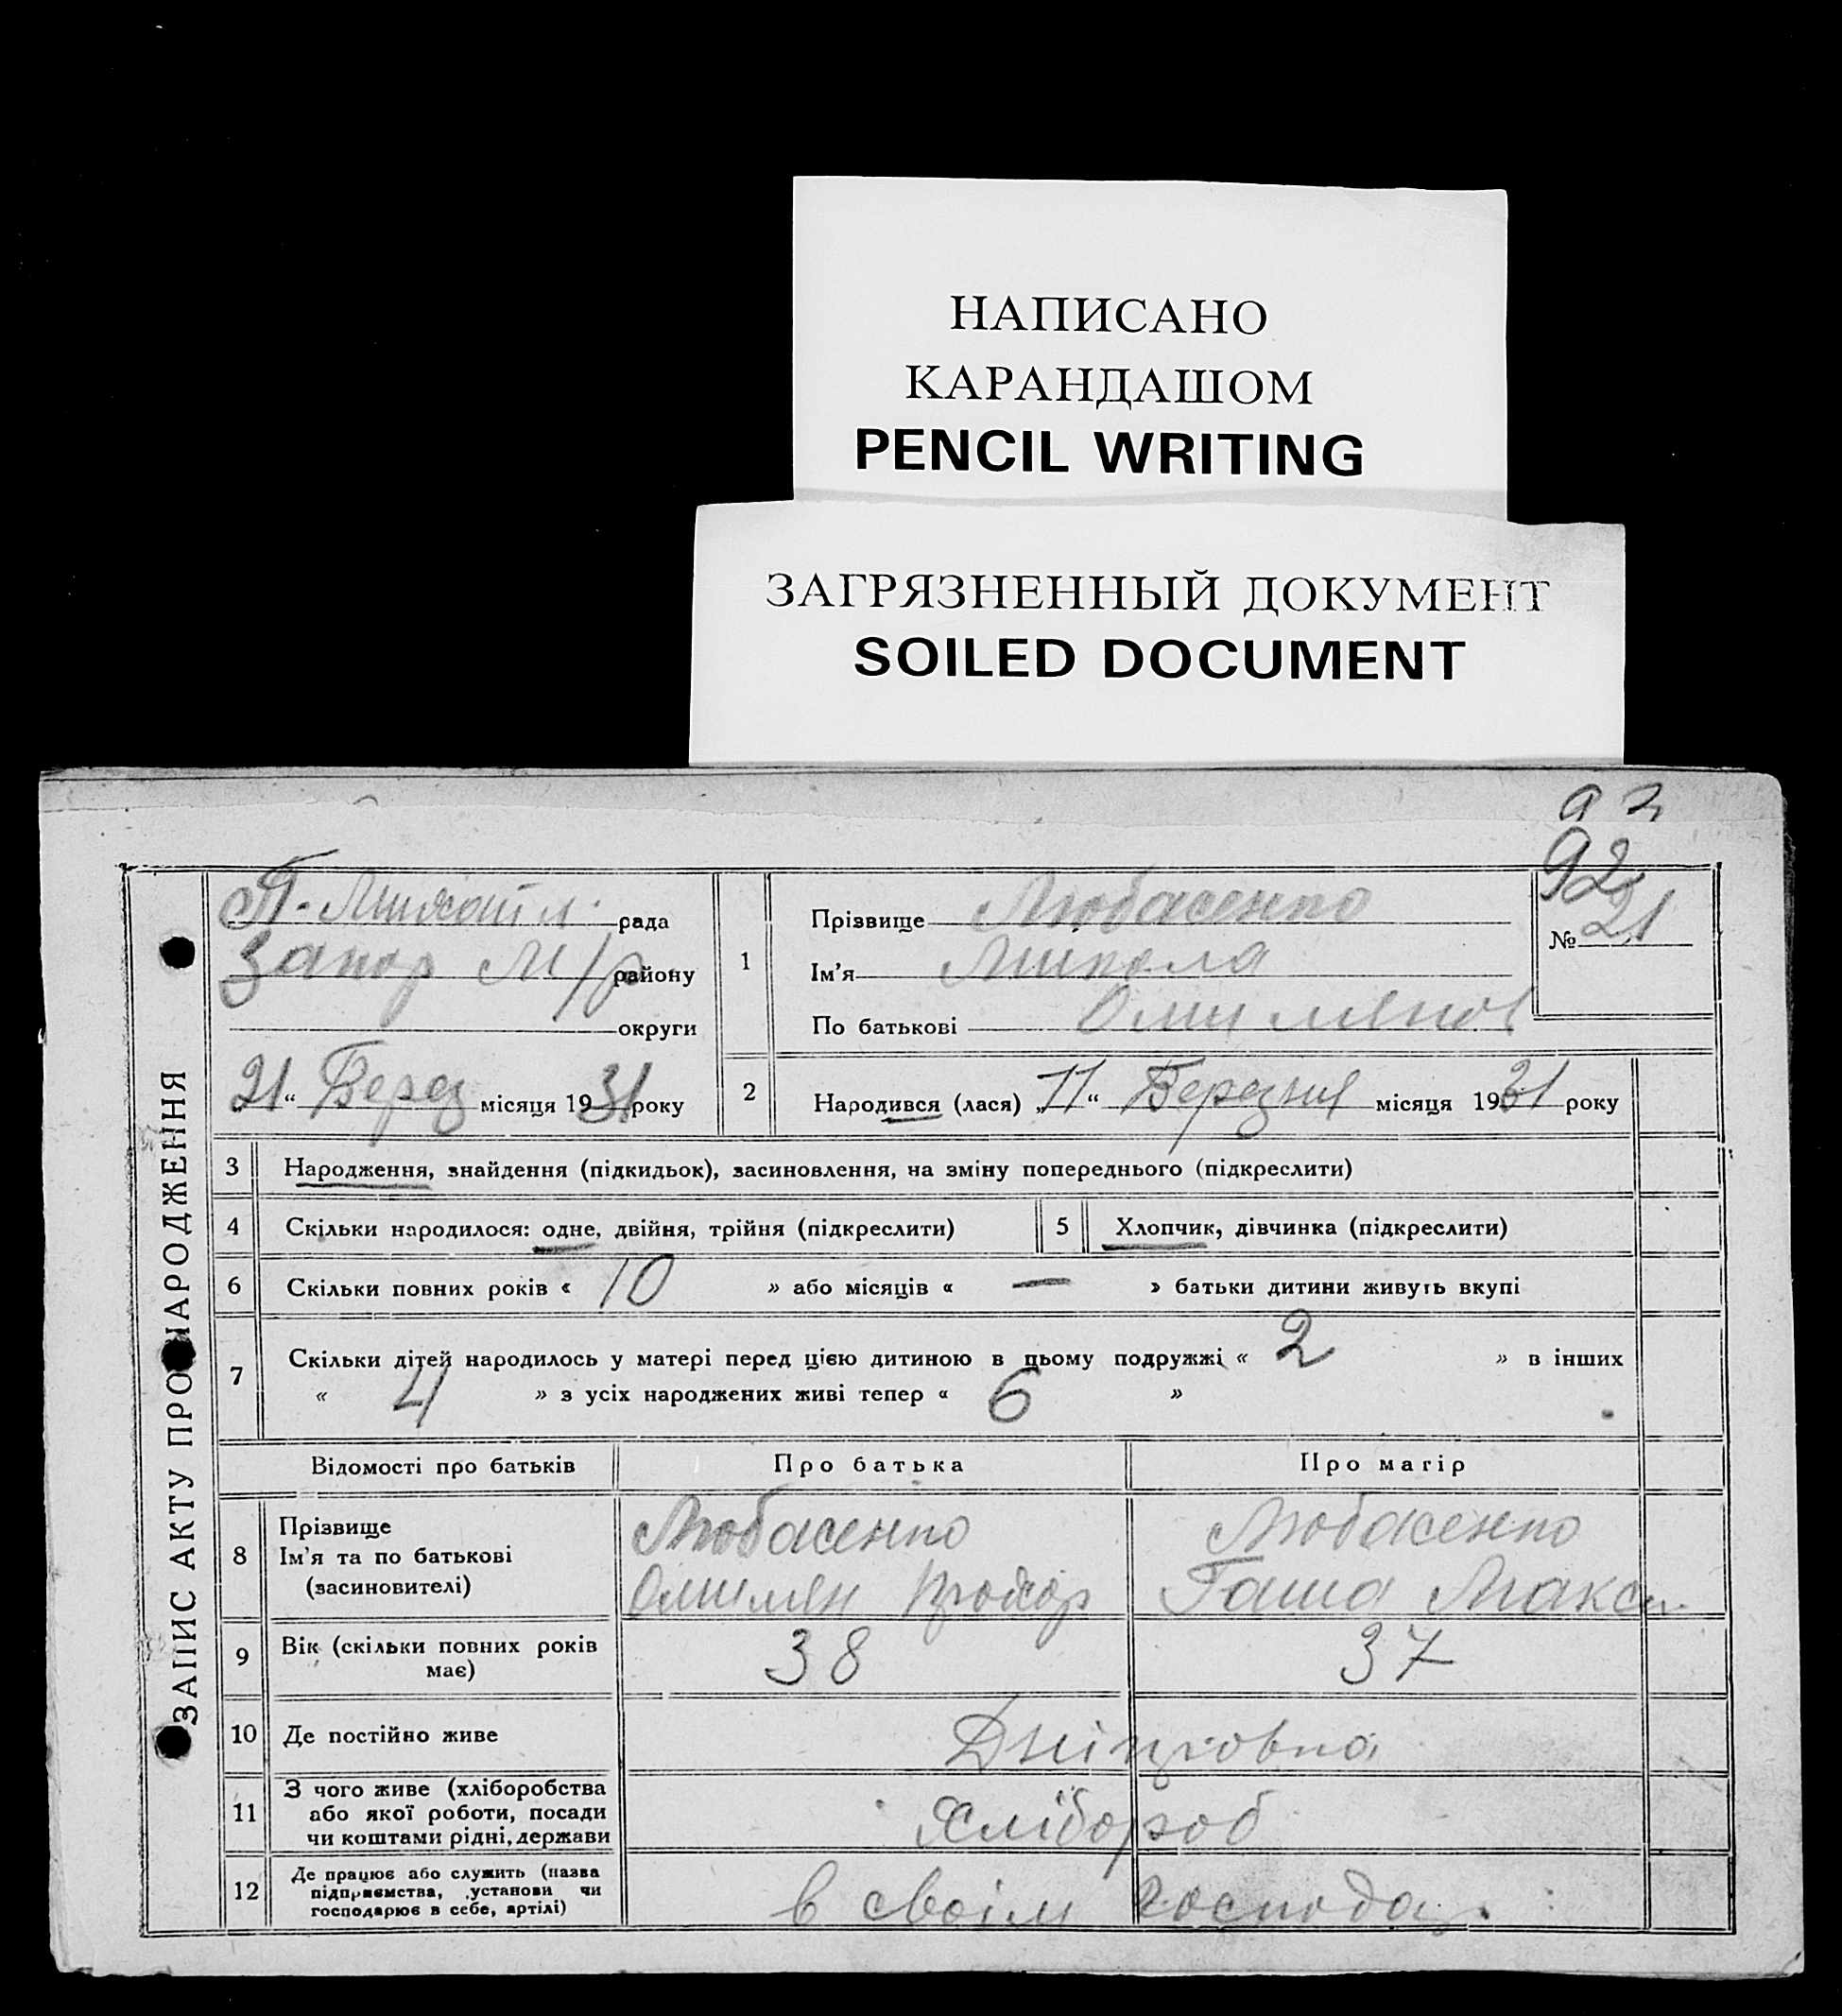 НАПИСАНО
КАРАНДАШОМ
PENCIL WRITING
ЗАГРЯЗНЕННЫЙ ДОКУМЕНТ
SOILED DOCUMENT
92
ЗАПИС АКТУ ПРО НАРОДЖЕННЯ
П. Михайл. рада
Запор М/р району
округи
21 “ Берез місяця 1931 року
1
Прізвище Любасенко
Ім'я Микола
По батькові Омилянов
№ 21
2 Народився (лася) „11“ Березня місяця 1931 року
3 Народження, знайдення (підкидьок), засиновлення, на зміну попереднього (підкреслити)
4 Скільки народилося: одне, двійня, трійня (підкреслити) 5 Хлопчик, дівчинка (підкреслити)
6 Скільки повних років « 10 » або місяців « — » батьки дитини живуть вкупі
7 Скільки дітей народилось у матері перед цією дитиною в цьому подружжі « 2 » в інших
« 4 » з усіх народжених живі тепер « 6 »
Відомості про батьків Про батька Про матір
8 Прізвище Любасенко Любасенко
Ім'я та по батькові
(засиновителі) Омилян Прохор Гаша Макси.
9 Вік (скільки повних років 38 37
має)
10 Де постійно живе Дніпровка
11 З чого живе (хліборобства
або якої роботи, посади Хлібороб
чи коштами рідні, держави
12 Де працює або служить (назва
підприємства, установи чи в своїм господар.
господарює в себе, артілі)